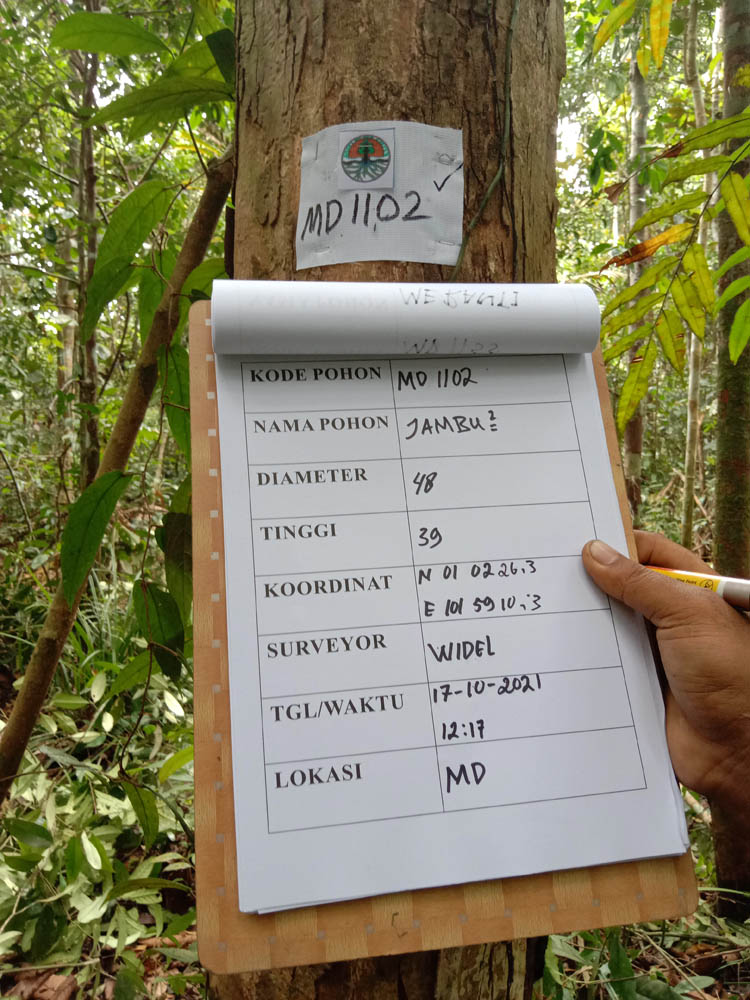 MD.1102
KODE POHON MD 1102
NAMA POHON JAMBU²
DIAMETER 48
TINGGI 39
KOORDINAT N 01 02 26,3
E 101 59 10,3
SURVEYOR WIDEL
TGL/WAKTU 17-10-2021
12:17
LOKASI MD